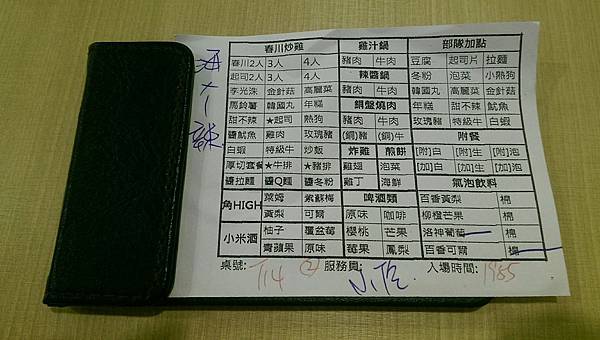 春川炒雞 雞汁鍋 部隊加點
春川2人 3人 4人 豬肉 牛肉 豆腐 起司片 拉麵
起司2人 3人 4人 辣醬鍋 冬粉 泡菜 小熱狗
李光洙 金針菇 高麗菜 豬肉 牛肉 韓國丸 高麗菜 金針菇
馬鈴薯 韓國丸 年糕 銅盤燒肉 年糕 甜不辣 魷魚
甜不辣 ★起司 熱狗 豬肉 牛肉 玫瑰豬 特級牛 白蝦
醬魷魚 雞肉 玫瑰豬 (銅)豬 (銅)牛 附餐
白蝦 特級牛 炒飯 炸雞 煎餅 [附]白 [附]生 [附]泡
厚切套餐 ★牛排 ★豬排 雞翅 泡菜 [加]白 [加]生 [加]泡
醬拉麵 醬Q麵 醬冬粉 雞丁 海鮮 氣泡飲料
角HIGH 萊姆 紫蘇梅 啤酒類 百香黃梨 棉
黃梨 可爾 原味 咖啡 柳橙芒果 棉
小米酒 柚子 覆盆莓 櫻桃 芒果 洛神葡萄 棉
青蘋果 原味 莓果 鳳梨 百香可爾 棉
桌號: T14 ② 服務員: 入場時間: 1985